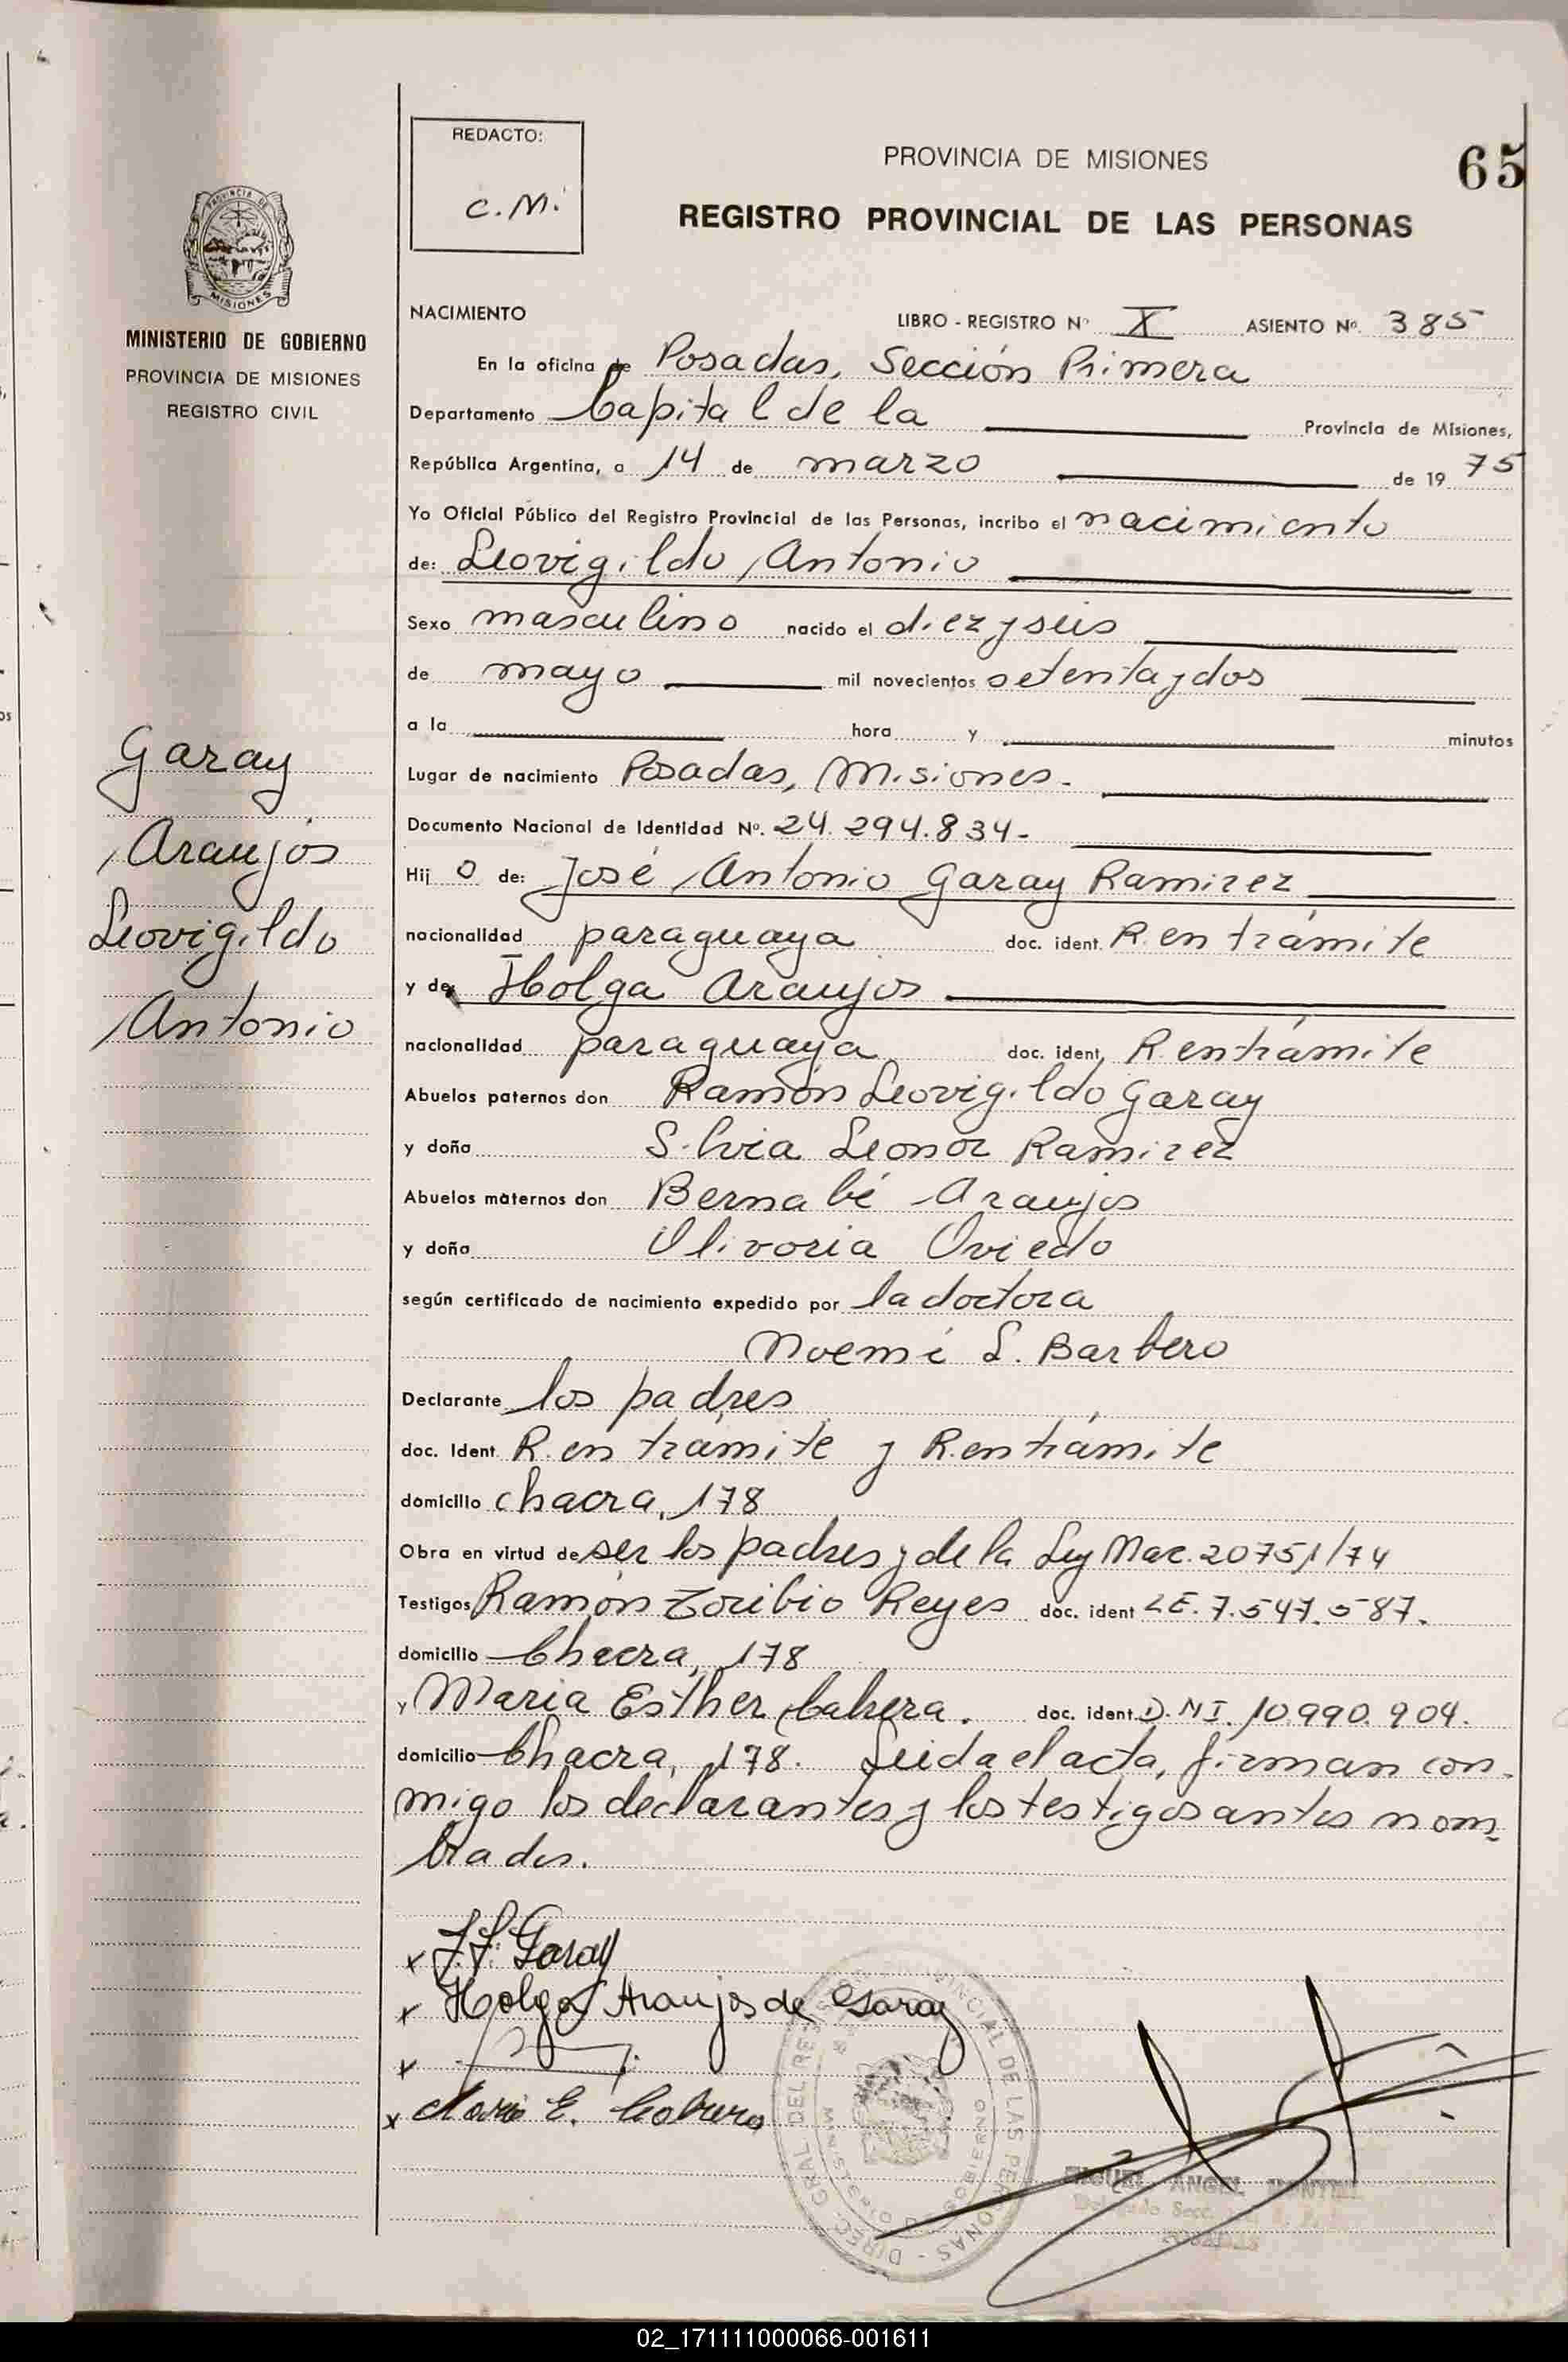 REDACTO:
C.M.
PROVINCIA DE MISIONES
65
REGISTRO PROVINCIAL DE LAS PERSONAS
MINISTERIO DE GOBIERNO
PROVINCIA DE MISIONES
REGISTRO CIVIL
Garay
Araujos
Leovigildo
Antonio
NACIMIENTO LIBRO - REGISTRO Nº X ASIENTO Nº 385
En la oficina de Posadas, Sección Primera
Departamento Capital de la Provincia de Misiones,
República Argentina, a 14 de marzo de 1975
Yo Oficial Público del Registro Provincial de las Personas, incribo el nacimiento
de: Leovigildo Antonio
Sexo masculino nacido el diez y seis
de mayo mil novecientos setenta y dos
a la hora y minutos
Lugar de nacimiento Posadas, Misiones.
Documento Nacional de Identidad Nº. 24.294.834-
Hij o de: José Antonio Garay Ramirez
nacionalidad paraguaya doc. ident. R. en trámite
y de Holga Araujos
nacionalidad paraguaya doc. ident. R. en trámite
Abuelos paternos don Ramón Leovigildo Garay
y doña Silvia Leonor Ramirez
Abuelos maternos don Bernabé Araujos
y doña Olivoria Oviedo
según certificado de nacimiento expedido por la doctora
Noemí L. Barbero
Declarante los padres
doc. Ident. R. en trámite y R. en trámite
domicilio chacra, 178
Obra en virtud de ser los padres y de la Ley Nac. 20751/74
Testigos Ramón Toribio Reyes doc. ident LE. 7.547.587.
domicilio Chacra, 178
y Maria Esther Cabrera. doc. ident. D.NI. 10.990.904.
domicilio Chacra, 178. Leida el acta, firman con-
migo los declarantes y los testigos antes nom-
brados.
x Garay
x Holga Araujos de Garay
x
x Maria E. Cabrera
DIREC. GRAL DEL REGISTRO PROVINCIAL DE LAS PERSONAS
MINISTERIO DE GOBIERNO
MIGUEL ANGEL
Delegado Secc.
02_171111000066-001611